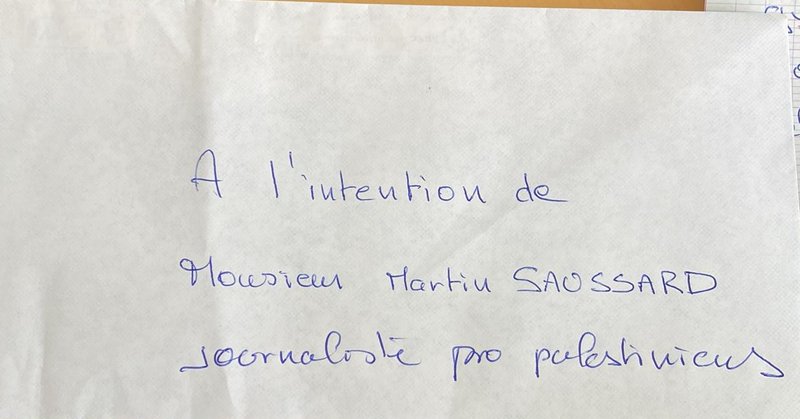 A l'intention de
Monsieur Martin SAUSSARD
Journaliste pro palestiniens